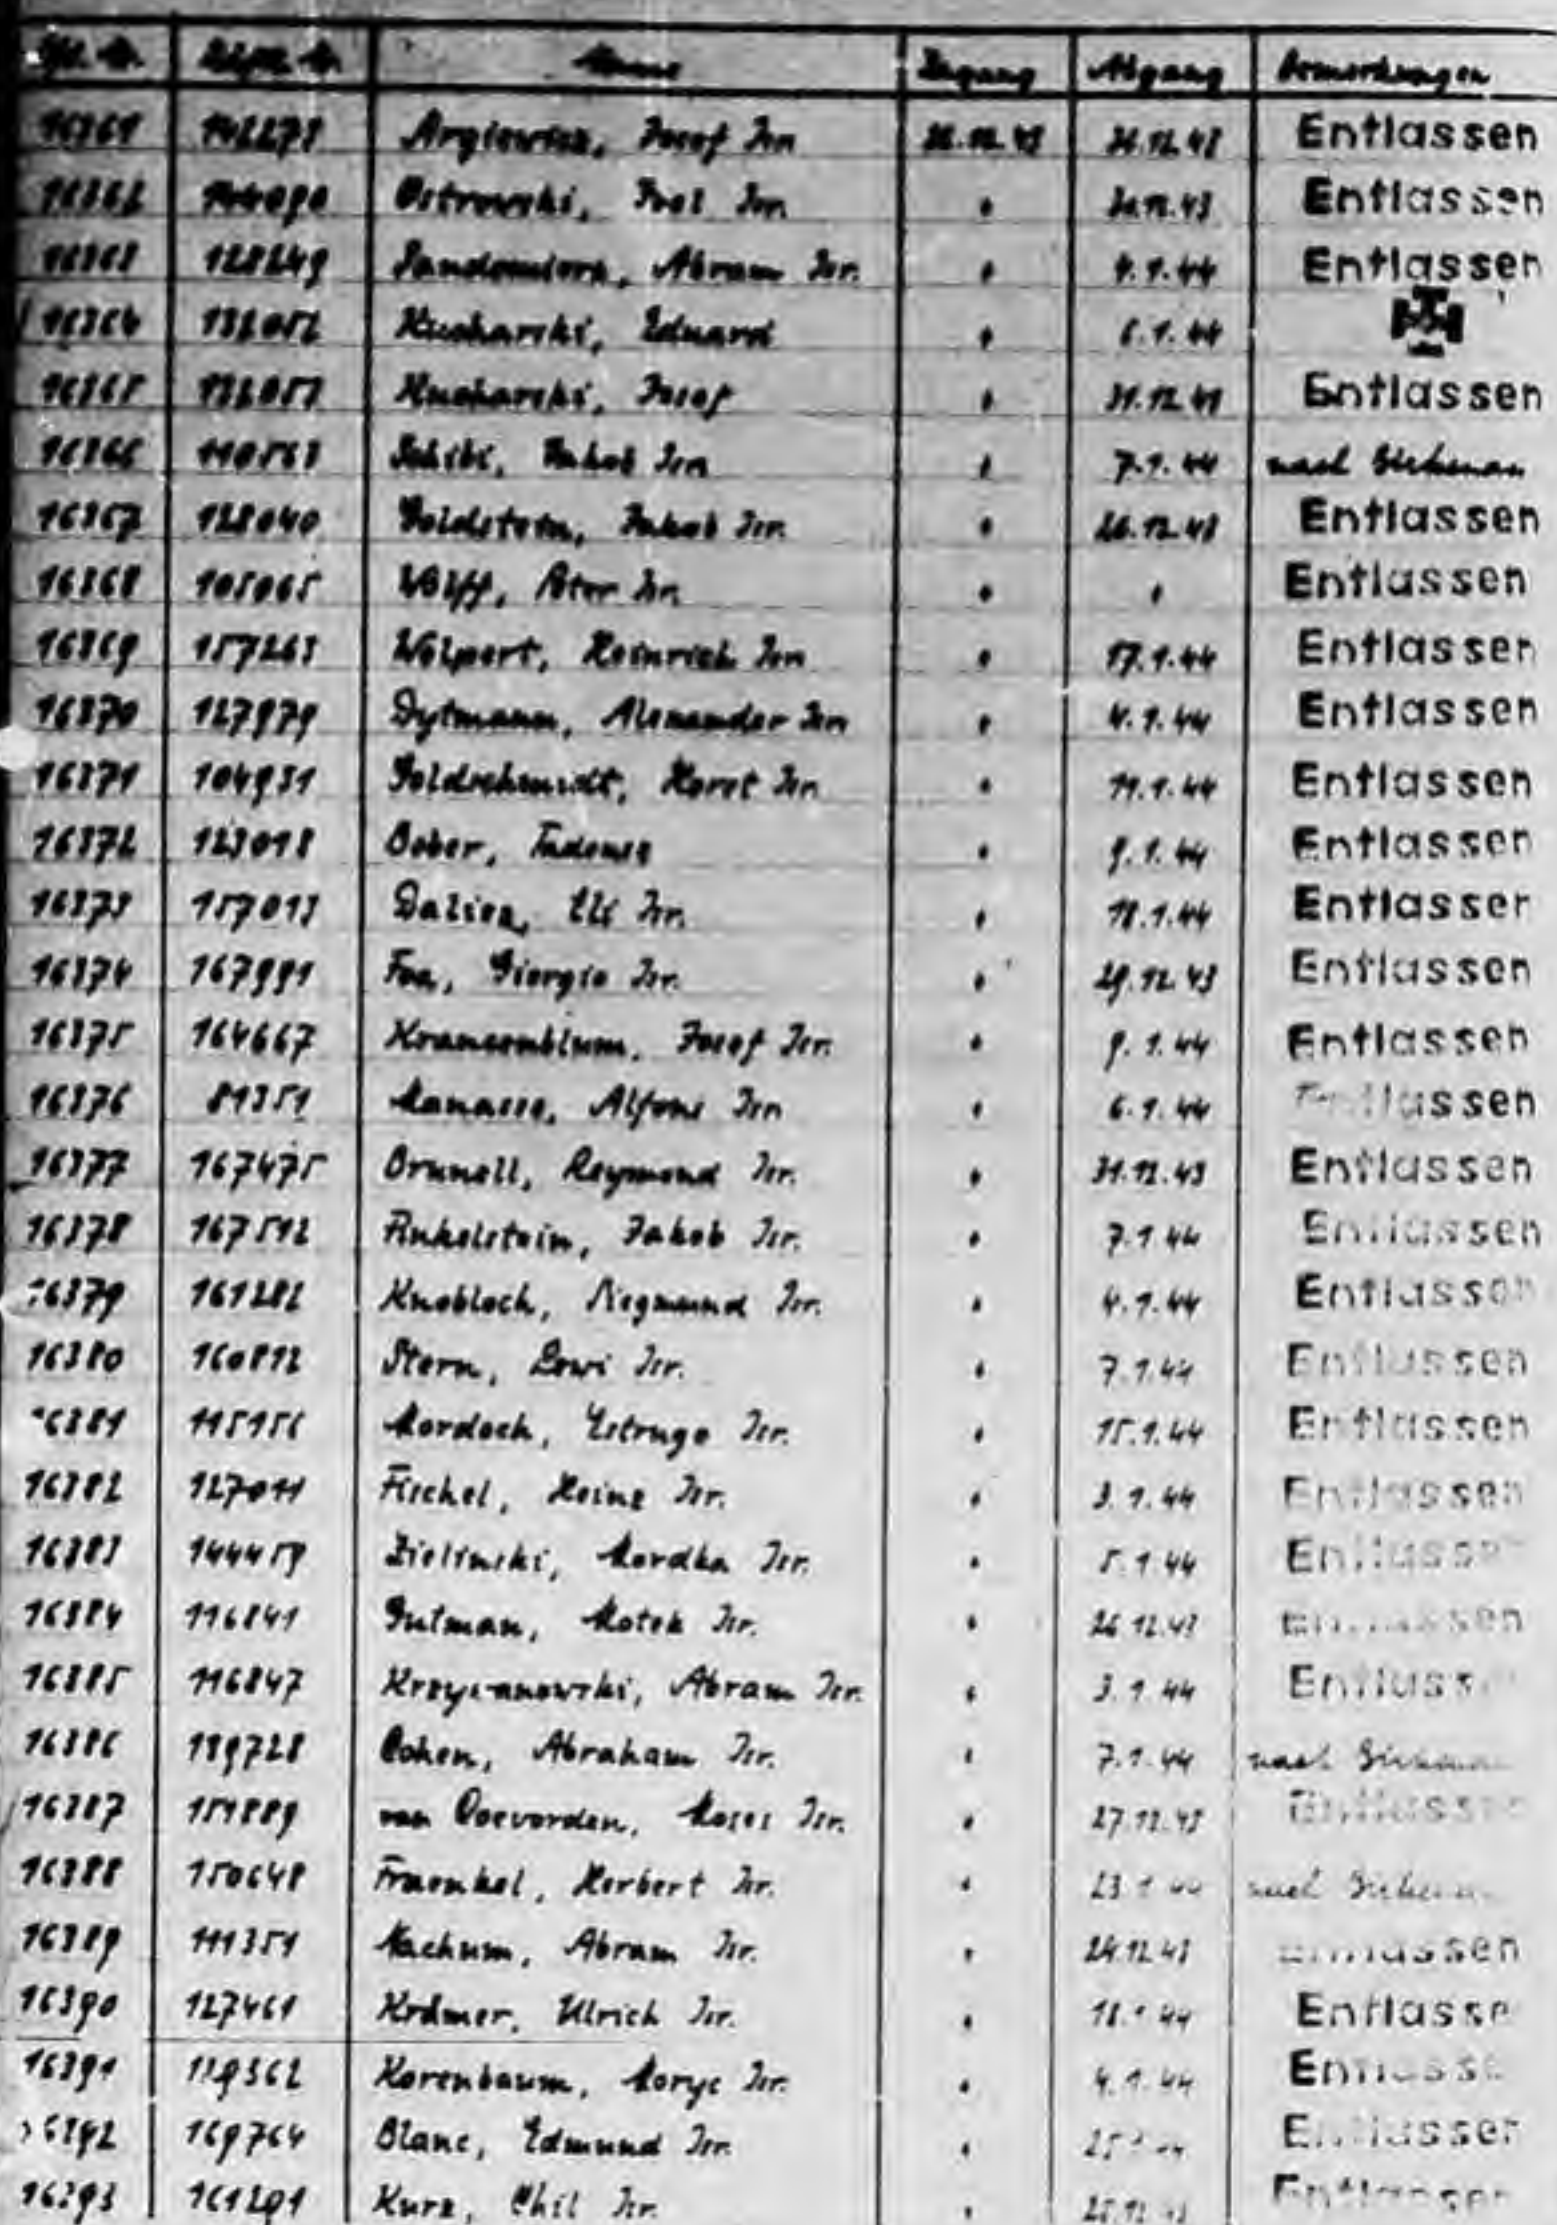 Lfd. Nr. Häftl. Nr. Name Zugang Abgang Bemerkungen
16361 Josef Isr. 31.12.43 Entlassen
16362 Ostrowski, Isr. Entlassen
16363 128249 Abram Isr. " 4.1.44 Entlassen
16364 132052 Kucharski, Eduard " 6.1.44
16365 132053 Kucharski, Josef " 31.12.43 Entlassen
16366 110563 Jakob Isr. " 7.1.44 nach Birkenau
16367 128040 Goldstein, Jakob Isr. " 26.12.43 Entlassen
16368 105065 Wolff, Isr. " " Entlassen
16369 157263 Wolpert, Heinrich Isr. " 17.1.44 Entlassen
16370 127979 Dytmann, Alexander Isr. " 4.1.44 Entlassen
16371 104931 Goldschmidt, Horst Isr. " 11.1.44 Entlassen
16372 123018 Bober, Tadeusz " 9.1.44 Entlassen
16373 157013 Eli Isr. " 18.1.44 Entlassen
16374 167991 Foa, Giorgio Isr. " 29.12.43 Entlassen
16375 164667 Josef Isr. " 9.1.44 Entlassen
16376 81351 Manasse, Alfons Isr. " 6.1.44 Entlassen
16377 167475 Brunell, Reymond Isr. " 31.12.43 Entlassen
16378 167512 Finkelstein, Jakob Isr. " 7.1.44 Entlassen
16379 161282 Knobloch, Siegmund Isr. " 4.1.44 Entlassen
16380 160812 Stern, Lewi Isr. " 7.1.44 Entlassen
16381 115156 Mordoch, Estrugo Isr. " 15.1.44 Entlassen
16382 127011 Fischel, Heinz Isr. " 3.1.44 Entlassen
16383 144459 Zielinski, Mordka Isr. " 5.1.44 Entlassen
16384 116841 Gutman, Motek Isr. " 26.12.43 Entlassen
16385 116847 Krzyzanowski, Abram Isr. " 3.1.44 Entlassen
16386 139728 Cohen, Abraham Isr. " 7.1.44 nach Birkenau
16387 151889 van Coevorden, Moses Isr. " 27.12.43 Entlassen
16388 150648 Fraenkel, Herbert Isr. " 23.1.44 nach Birkenau
16389 111351 Nachum, Abram Isr. " 24.12.43 Entlassen
16390 127461 Krämer, Ulrich Isr. " 18.1.44 Entlassen
16391 139362 Korenbaum, Moryc Isr. " 4.1.44 Entlassen
16392 169764 Blanc, Edmund Isr. " Entlassen
16393 161291 Kurz, Chil Isr. " Entlassen